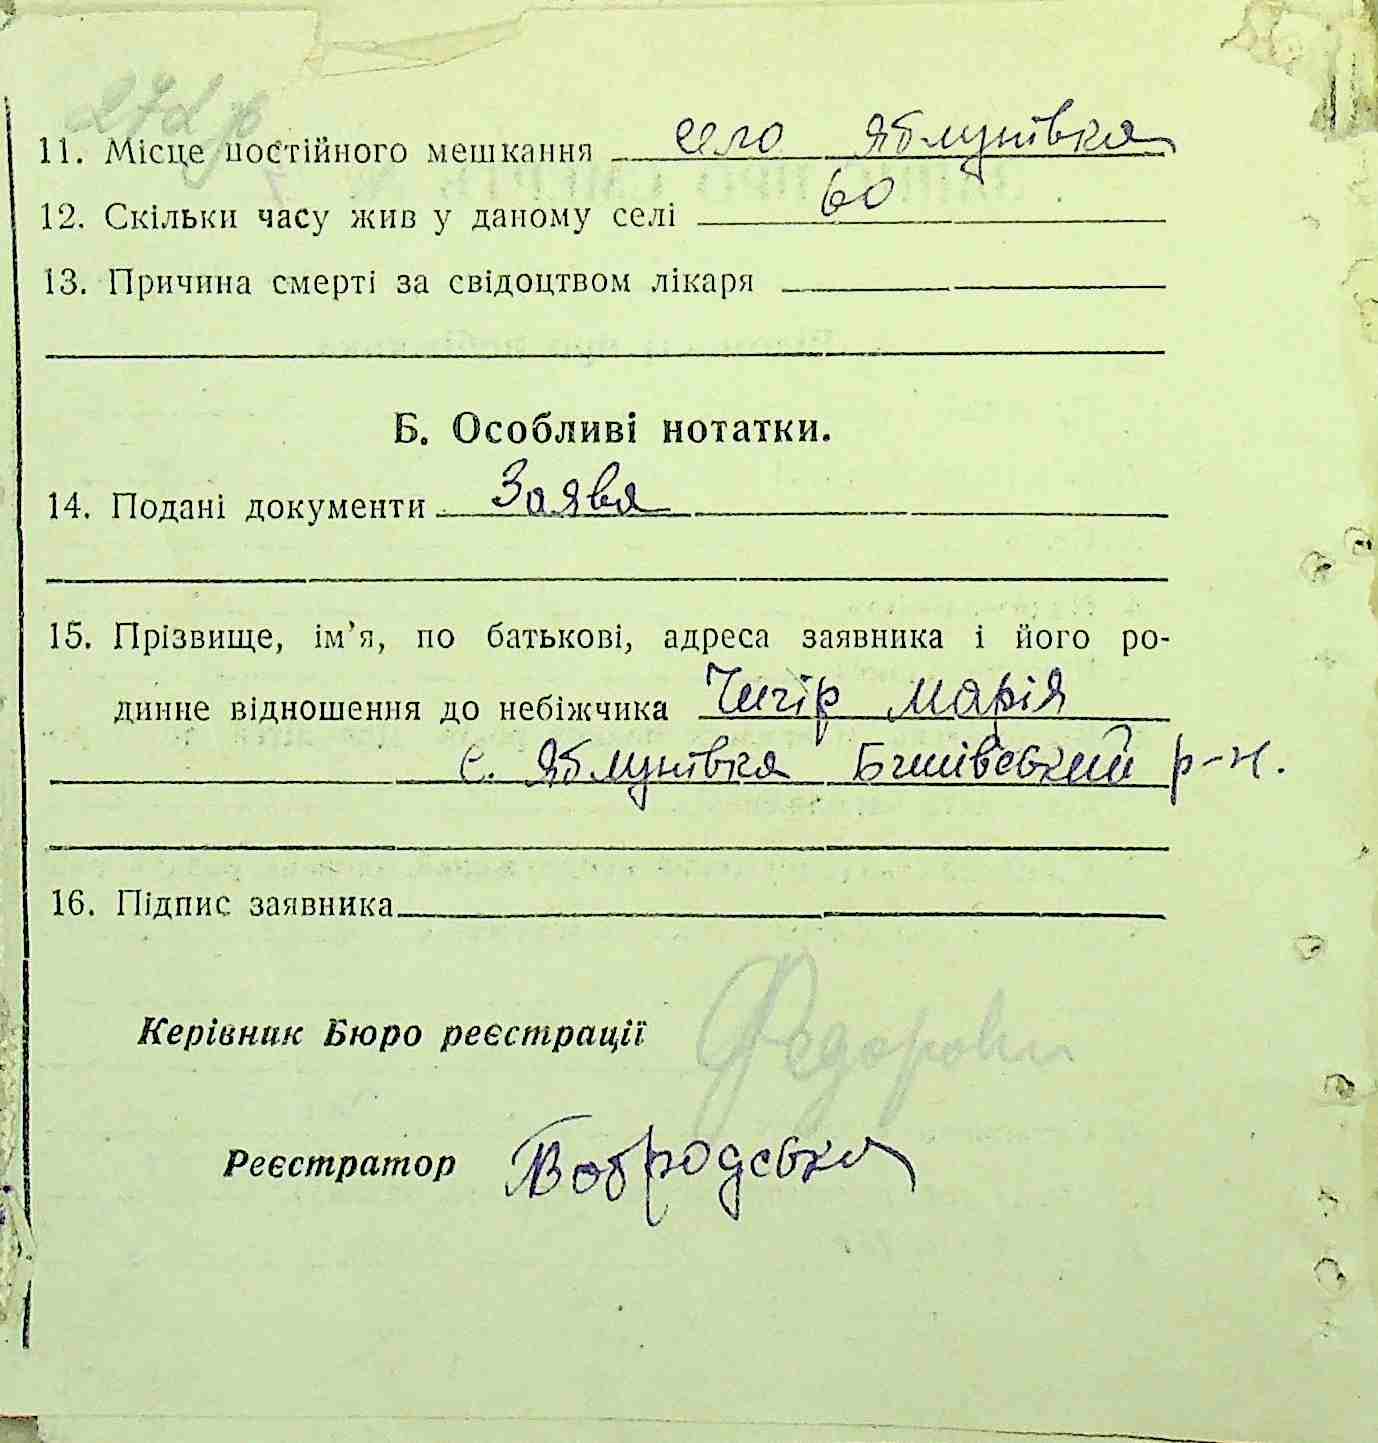 11. Місце постійного мешкання село Яблунівка
12. Скільки часу жив у даному селі 60
13. Причина смерті за свідоцтвом лікаря
Б. Особливі нотатки.
14. Подані документи Заява
15. Прізвище, ім'я, по батькові, адреса заявника і його ро-
динне відношення до небіжчика Чигір Марія
с. Яблунівка р-н.
16. Підпис заявника
Керівник Бюро реєстрації
Реєстратор